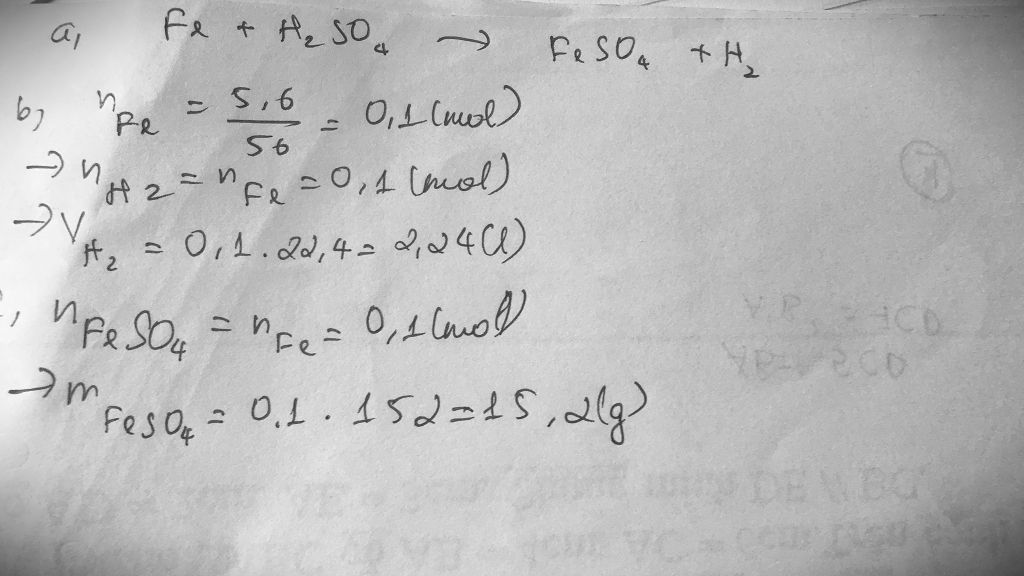 a, Fe + H₂SO₄ → FeSO₄ + H₂
b, nFe = 5,6/56 = 0,1 (mol)
→ nH2 = nFe = 0,1 (mol)
→ VH₂ = 0,1 . 22,4 = 2,24 (l)
, nFeSO₄ = nFe = 0,1 (mol)
→ mFeSO₄ = 0,1 . 152 = 15,2 (g)